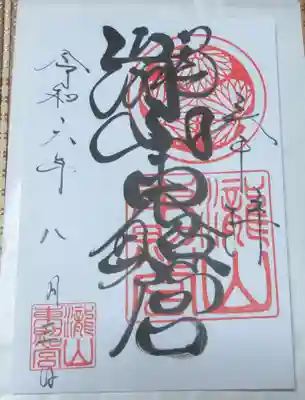 瀧山東照宮
令和六年八月
瀧山
東照宮
瀧山
東照宮